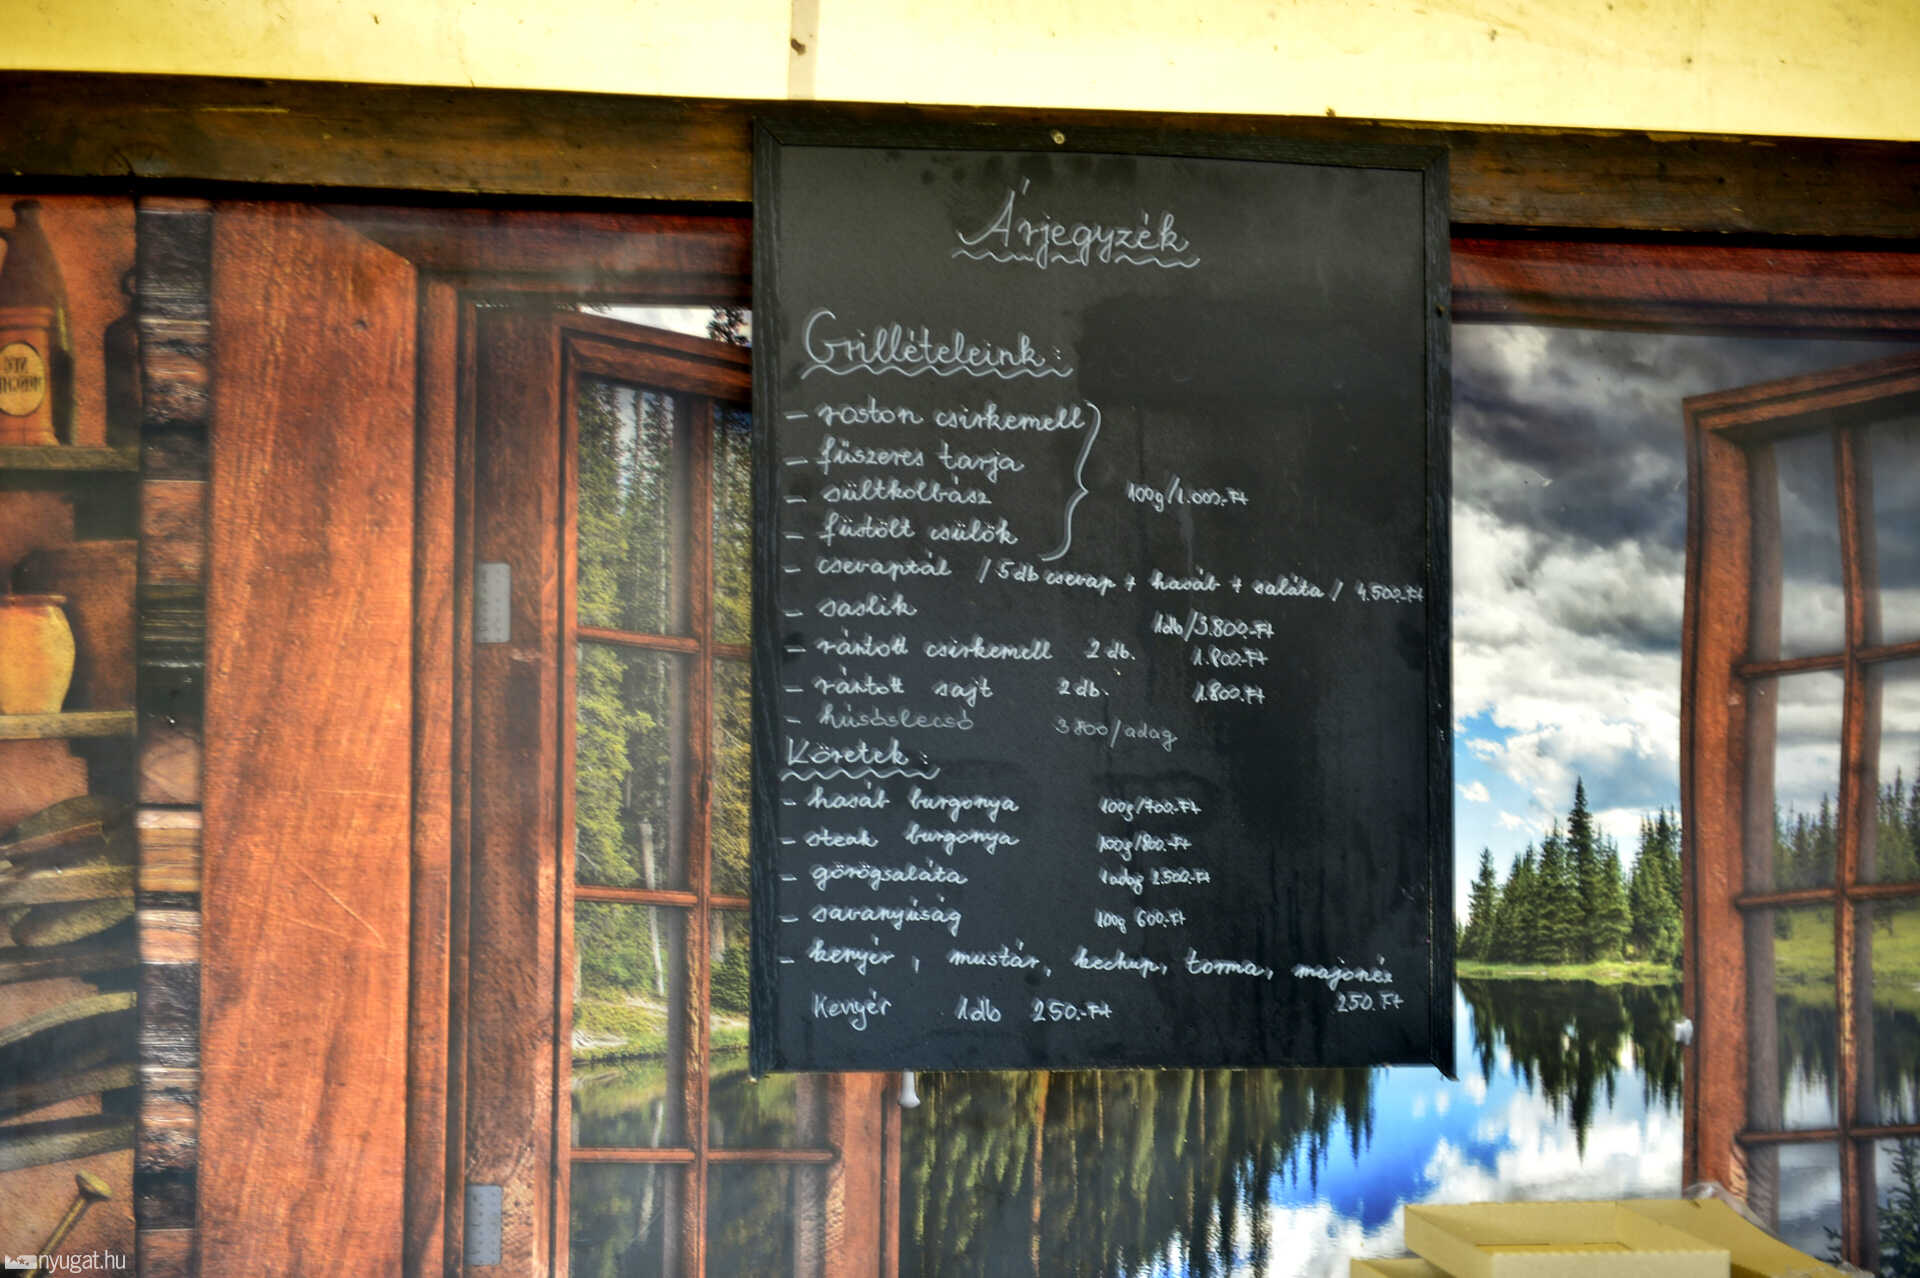 Árjegyzék
Grillételeink:
- roston csirkemell
- fűszeres tarja
- sültkolbász
100g/1.000.-Ft
- füstölt csülök
- csevaptál /5 db csevap + hasáb + saláta/ 4.500.-Ft
- saslik 1db/3.800.-Ft
- rántott csirkemell 2 db. 1.800.-Ft
- rántott sajt 2 db. 1.800.-Ft
- húsoslecsó 3800/adag
Köretek:
- hasáb burgonya 100g/700.-Ft
- steak burgonya 100g/800.-Ft
- görögsaláta 1adag 2.500.-Ft
- savanyúság 100g 600.-Ft
- kenyér, mustár, kechup, torma, majonéz
Kenyér 1db 250.-Ft 250.Ft
nyugat.hu